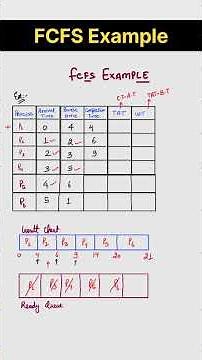 FCFS Example
FCFS EXAMPLE
CT-A.T TAT-B.T
Ex:-
Process Arrival Time Burst Time Completion Time TAT WT
P1 0 4 4
P2 1 2 6
P3 2 3 9
P4 3 5
P5 4 6
P6 5 1
Gantt Chart
P1 P2 P3 P4 P5 P6
0 4 6 9 14 20 21
Ready Queue